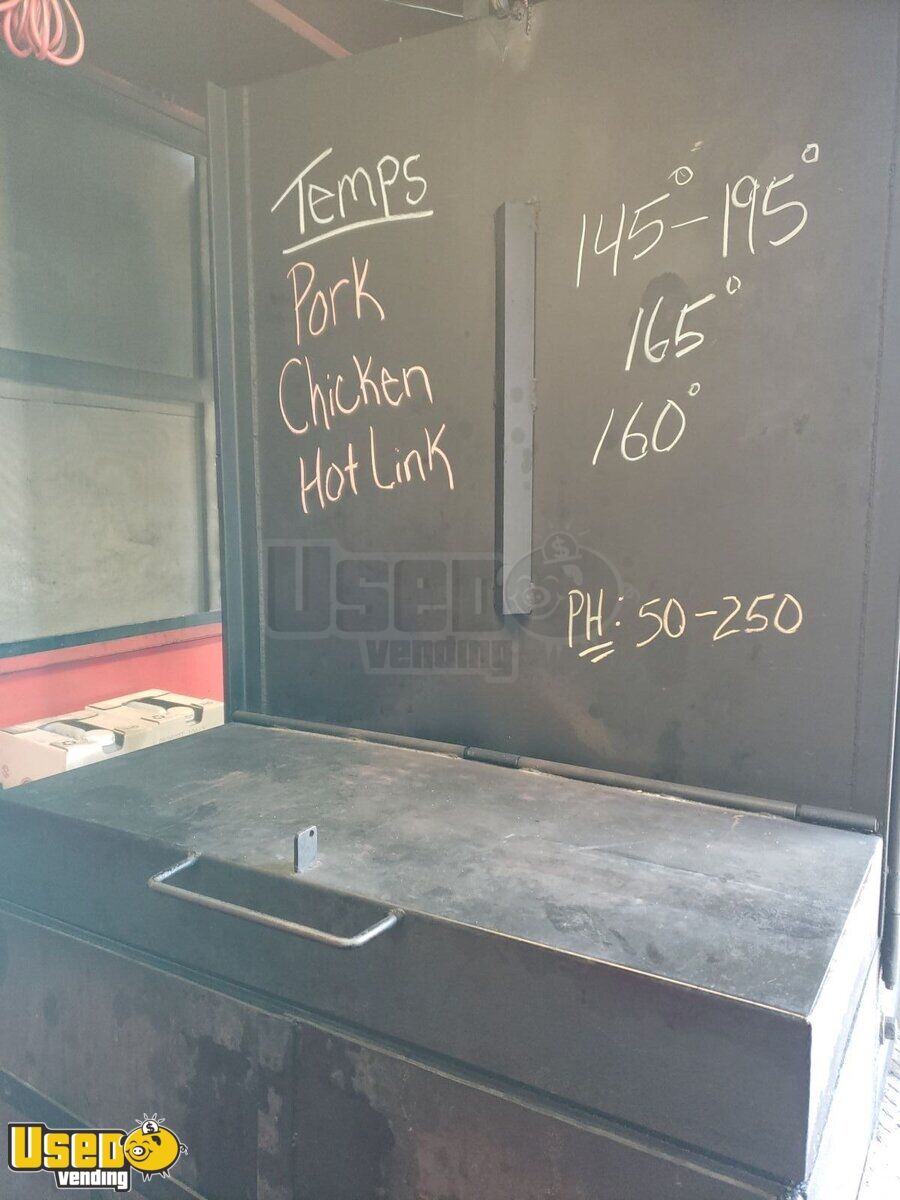 Temps
145° - 195°
Pork
165°
Chicken
160°
Hot Link
PH: 50-250
USED
vending
USED
vending